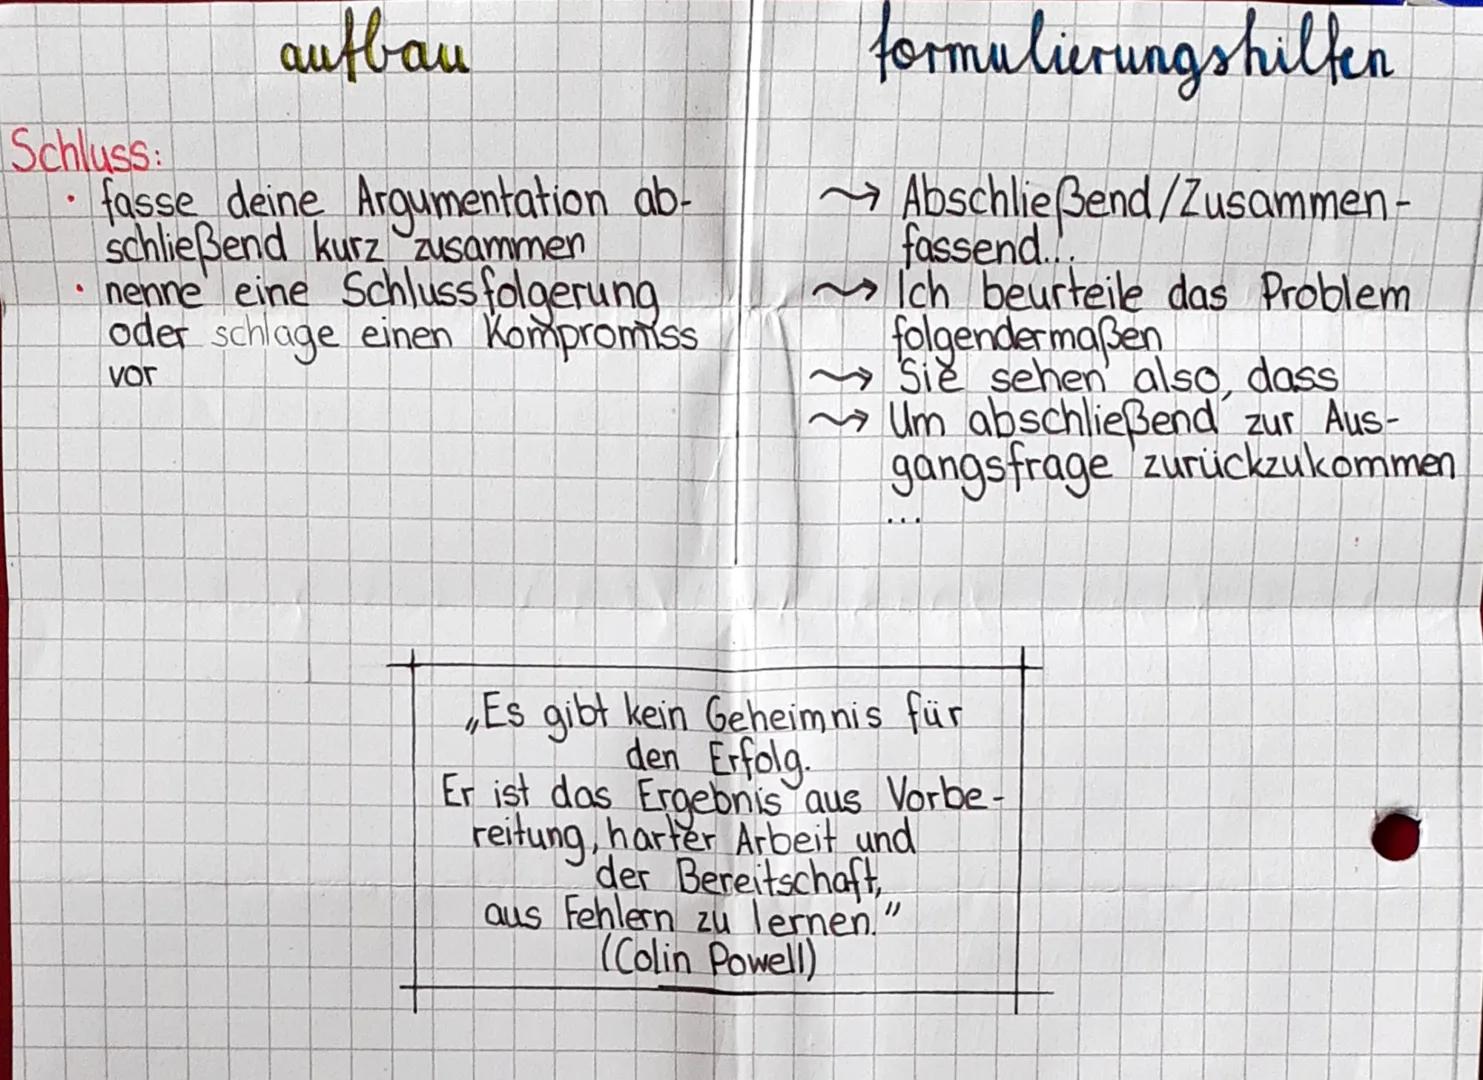 aufbau
formulierungshilfen
Schluss:
· fasse deine Argumentation ab-
schließend kurz zusammen
· nenne eine Schlussfolgerung
oder schlage einen Kompromiss
vor
⇝ Abschließend/Zusammen-
fassend...
⇝ Ich beurteile das Problem
folgendermaßen
⇝ Sie sehen also, dass
⇝ Um abschließend zur Aus-
gangsfrage zurückzukommen
...
„Es gibt kein Geheimnis für
den Erfolg.
Er ist das Ergebnis aus Vorbe-
reitung, harter Arbeit und
der Bereitschaft,
aus Fehlern zu lernen."
(Colin Powell)